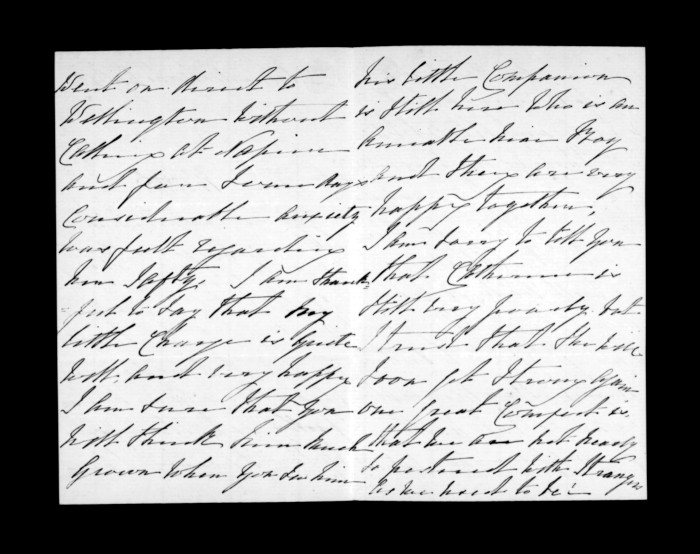 Went on direct to
Wellington without
Calling at Napier
and for some days
Considerable anxiety
was felt regarding
her safty. I am thank
-ful to say that my
little Charge is quite
well. and very happy
I am sure that you
will think him much
grown when you see him
his little Companion
is still here who is an
amiable nice Boy
and they are very
happy together,
I am sorry to tell you
that Catherine is
still very poorly but
I trust that she will
soon get strong again
one great Comfort is
that we are not nearly
so pestered with Strangers
as we used to be.